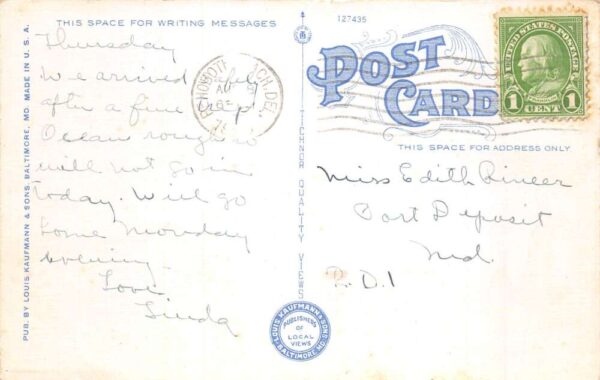 THIS SPACE FOR WRITING MESSAGES
127435
POST
CARD
THIS SPACE FOR ADDRESS ONLY
UNITED STATES POSTAGE
FRANKLIN
1 CENT 1
REHOBOTH BEACH DEL.
Thursday
We arrived safely
after a fine trip
Ocean rough so
will not go in
today. Will go
home Monday
evening.
Love
Linda
Miss Edith
Port Deposit
Md.
R.D.1
PUB. BY LOUIS KAUFMANN & SONS, BALTIMORE, MD. MADE IN U. S. A.
TICHNOR QUALITY VIEWS
LOUIS KAUFMANN & SONS
PUBLISHERS
OF
LOCAL
VIEWS
BALTIMORE MD.